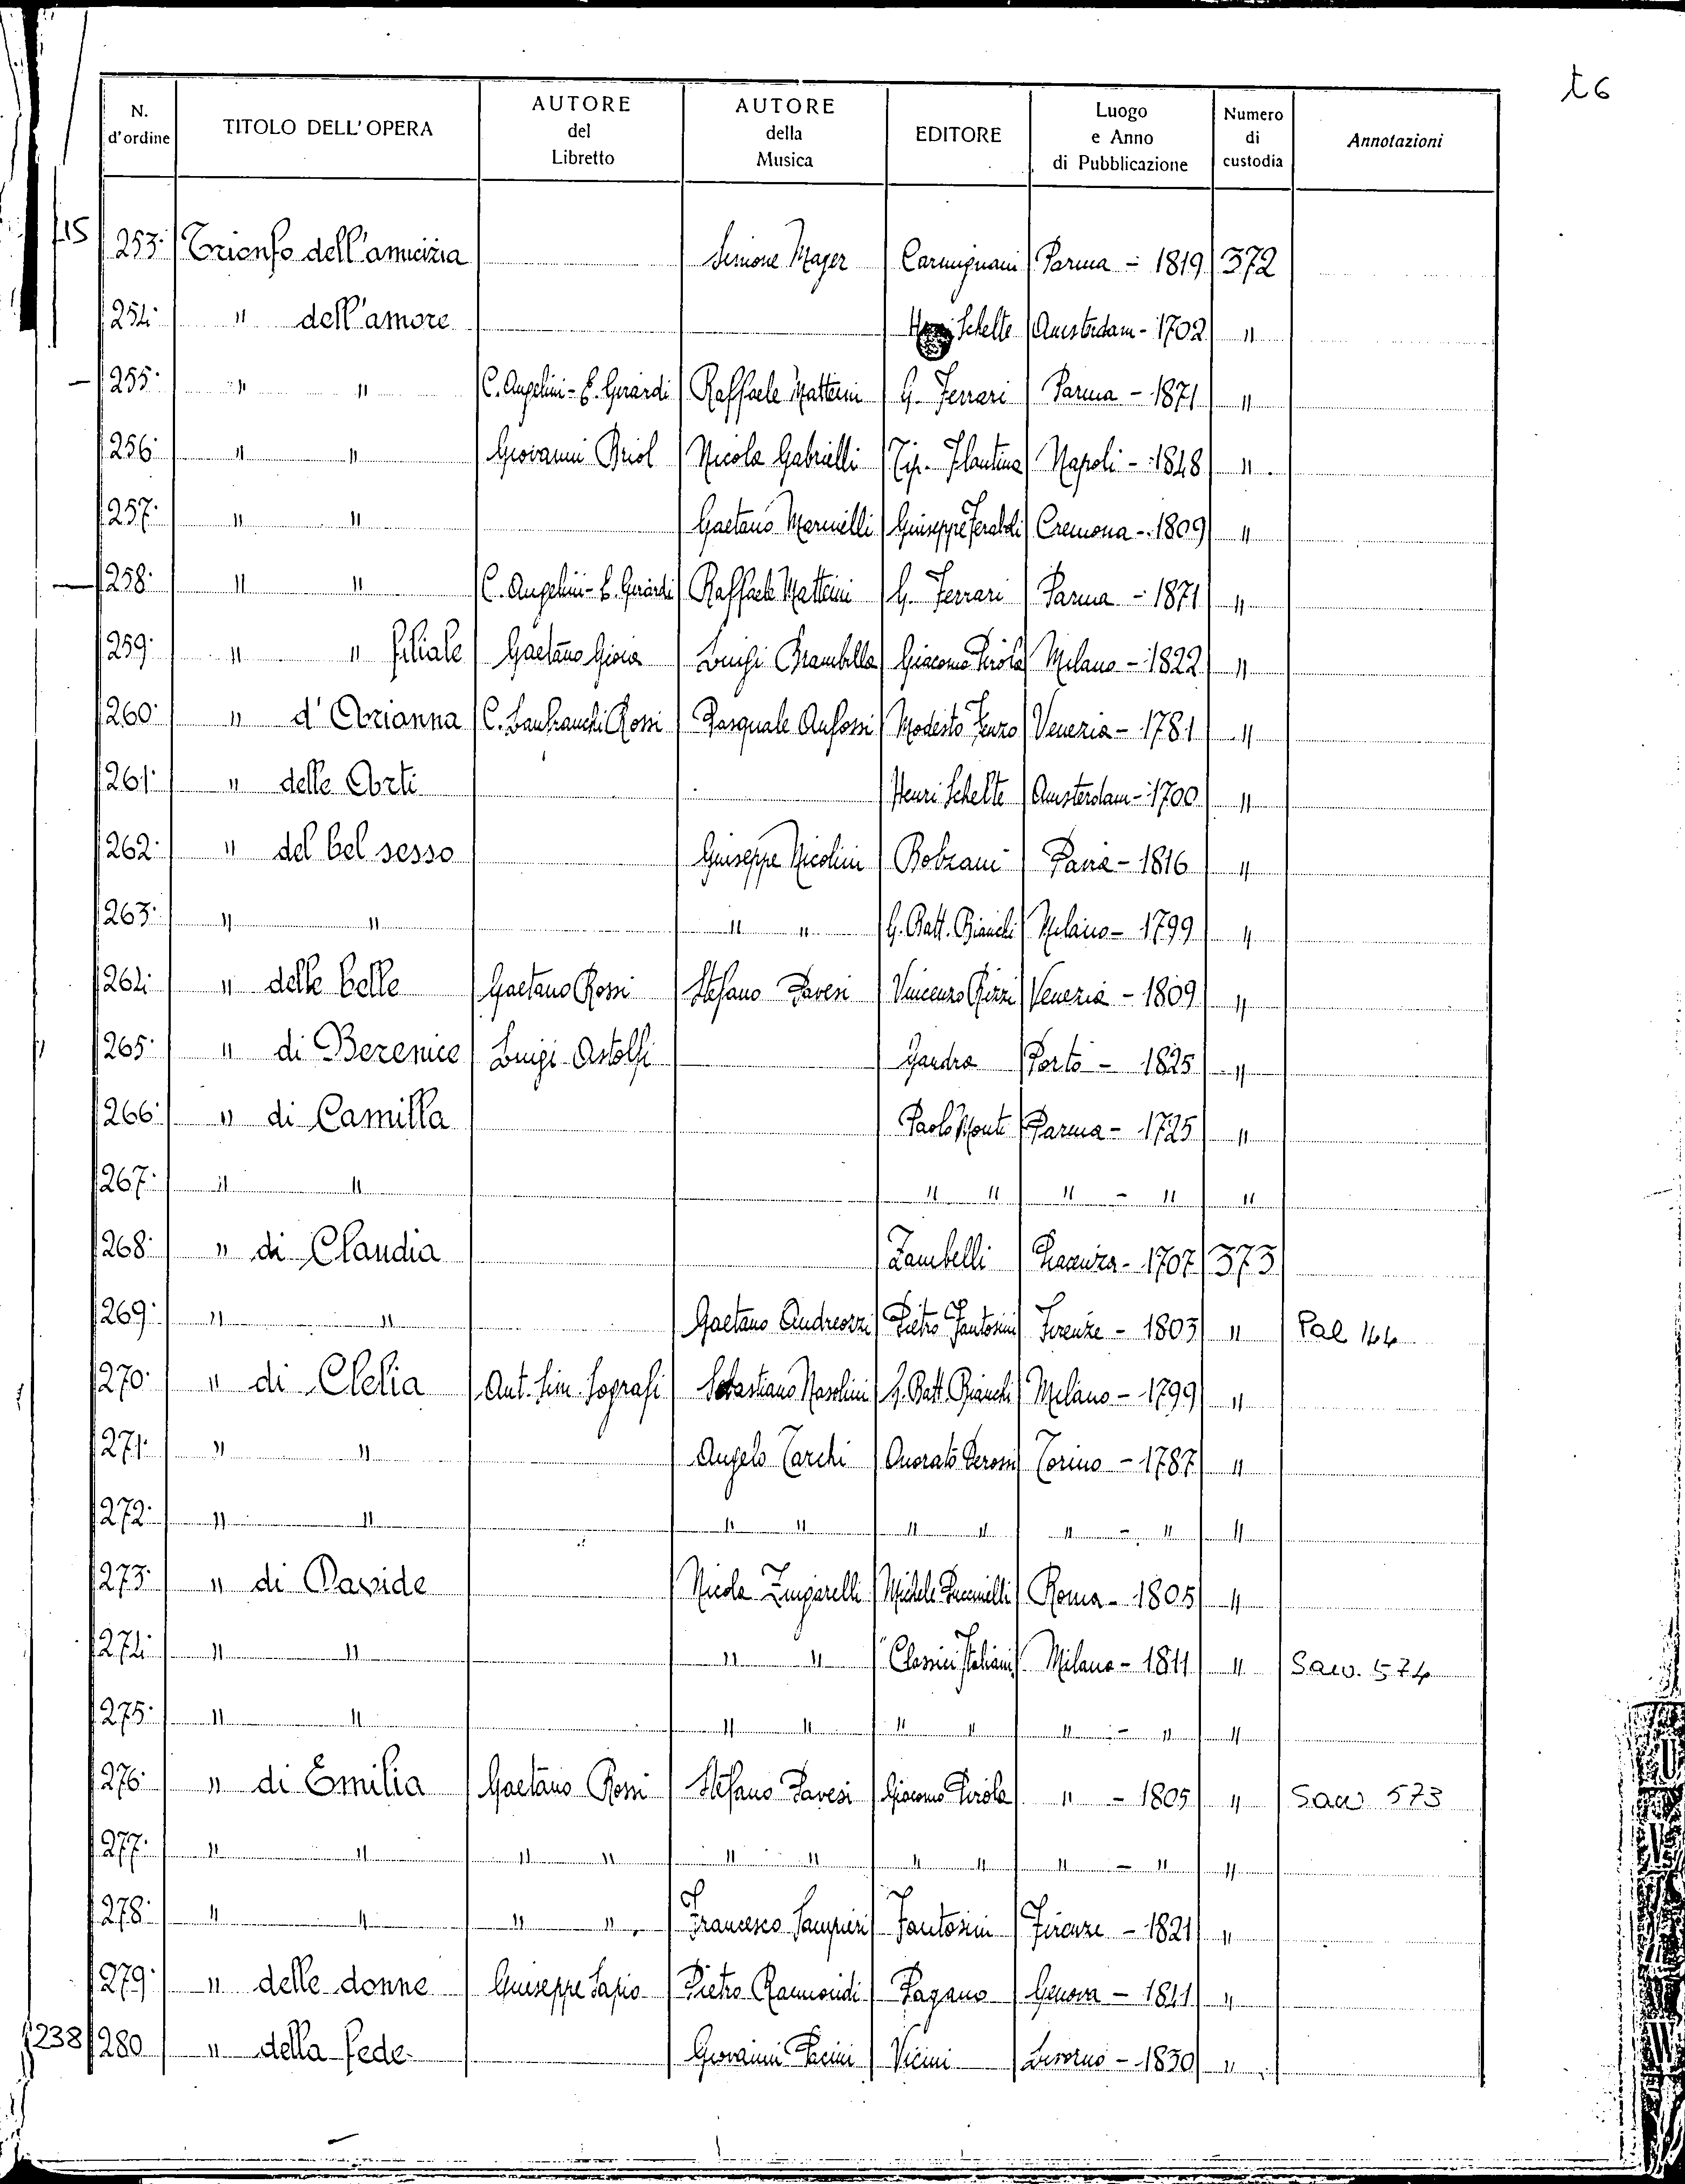 t6
N. d'ordine | TITOLO DELL'OPERA | AUTORE del Libretto | AUTORE della Musica | EDITORE | Luogo e Anno di Pubblicazione | Numero di custodia | Annotazioni
15 253. Trionfo dell'amicizia Simone Mayer Carmignani Parma - 1819 372
254. " dell'amore Schelte Amsterdam - 1702 "
255. " " C. Angelini - E. Girardi Raffaele Matteini G. Ferrari Parma - 1871 "
256. " " Giovanni Briol Nicola Gabrielli Tip. Plautina Napoli - 1848 "
257. " " Gaetano Marinelli Giuseppe Feraboli Cremona - 1809 "
258. " " C. Angelini - E. Girardi Raffaele Matteini G. Ferrari Parma - 1871 "
259. " " filiale Gaetano Gioia Luigi Brambilla Giacomo Pirola Milano - 1822 "
260. " d'Arianna C. Lanfranchi Rossi Pasquale Anfossi Modesto Fenzo Venezia - 1781 "
261. " delle Arti Henri Schelte Amsterdam - 1700 "
262. " del bel sesso Giuseppe Nicolini Bolzani Pavia - 1816 "
263. " " " " G. Batt. Bianchi Milano - 1799 "
264. " delle belle Gaetano Rossi Stefano Pavesi Vincenzo Rizzi Venezia - 1809 "
265. " di Berenice Luigi Astolfi Gandra Porto - 1825 "
266. " di Camilla Paolo Monti Parma - 1725 "
267. " " " " " - " "
268. " di Claudia Zambelli Piacenza - 1707 373
269. " " Gaetano Andreozzi Pietro Fantosini Firenze - 1803 " Pal 144
270. " di Clelia Ant. Sim. Sografi Sebastiano Nasolini G. Batt. Bianchi Milano - 1799 "
271. " " Angelo Tarchi Onorato Derossi Torino - 1787 "
272. " " " " " " " - " "
273. " di Davide Nicola Zingarelli Michele Puccinelli Roma - 1805 "
274. " " " " "Classici Italiani" Milano - 1811 " Saw. 574
275. " " " " " " " - " "
276. " di Emilia Gaetano Rossi Stefano Pavesi Giacomo Pirola " - 1805 " Saw 573
277. " " " " " " " " " - " "
278. " " " " Francesco Sampieri Fantosini Firenze - 1821 "
279. " delle donne Giuseppe Sapio Pietro Raimondi Pagano Genova - 1841 "
238 280 " della fede Giovanni Pacini Vicini Livorno - 1830 "